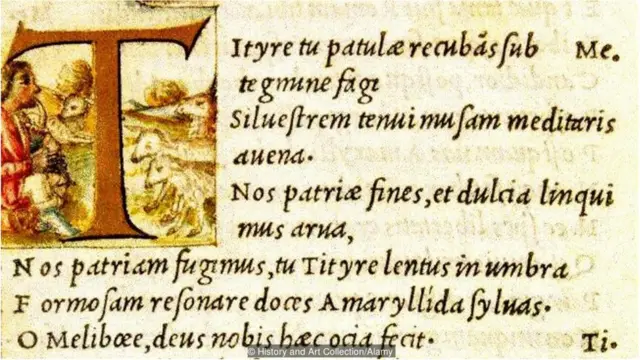 Tityre tu patulæ recubãs sub Me.
tegmine fagi
Silueſtrem tenui muſam meditaris
auena.
Nos patriæ fines, et dulcia linqui
mus arua,
Nos patriam fugimus, tu Tityre lentus in umbra
Formoſam reſonare doces Amaryllida ſyluas.
O Meliboee, deus nobis hæc ocia fecit. Ti.
© History and Art Collection/Alamy